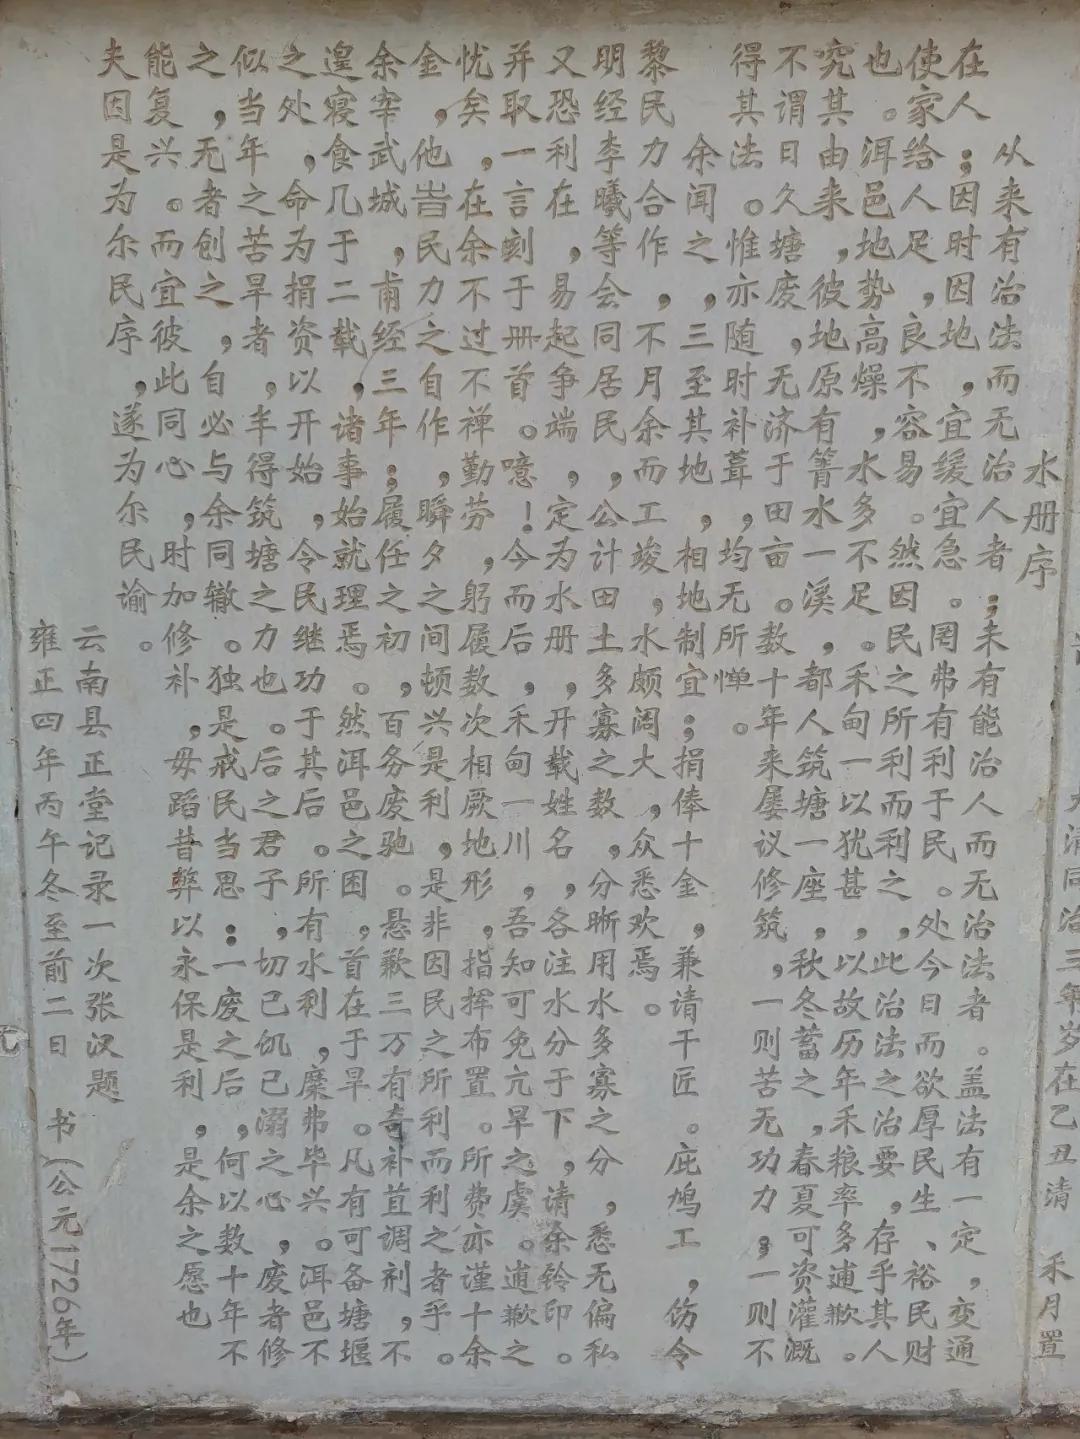 大清同治三年岁在乙丑清 禾月置
水册序
从来有治法而无治人者；未有能治人而无治法者。盖法有一定，变通
在人；因时因地，宜缓宜急。罔弗有利于民。处今日而欲厚民生、裕民财
使家给人足，良不容易。然因民之所利而利之，此治法之治要，存乎其人
也。洱邑地势高燥，水多不足。禾甸一以犹甚，以故历年禾粮率多逋歉。
究其由来，彼地原有箐水一溪，都人筑塘一座，秋冬蓄之，春夏可资灌溉
不谓日久塘废，无济于田亩。数十年来屡议修筑，一则苦无功力；一则不
得其法。惟亦随时补葺，均无所惮。
余闻之，三至其地，相地制宜；捐俸十金，兼请干匠。庇鸠工，饬令
黎民力合作，不月余而工竣，水颇阔大，众悉欢焉。
明经李曦等会同居民，公计田土多寡之数，分晰用水多寡之分，悉无偏私
又恐利在，易起争端，定为水册，开载姓名，各注水分于下，请余铃印。
并取一言刻于册首。噫！今而后，禾甸一川，吾知可免亢旱之虞。逋歉之
忧矣，在余不过不禅勤劳，躬履数次相厥地形，指挥布置。所费亦谨十余
金，他皆民力之自作，瞬夕之间顿兴是利，是非因民之所利而利之者乎。
余宰武城，甫经三年；履任之初，百务废驰。悬歉三万有奇补苴调剂，不
遑寝食几于二载，诸事始就理焉。然洱邑之困，首在于旱。凡有可备塘堰
之处，命为捐资以开始，令民继功于其后。所有水利，糜弗毕兴。洱邑不
似当年之苦旱者，丰得筑塘之力也。后之君子，切已饥已溺之心，废者修
之，无者创之，自必与余同辙。独是戒民当思：一废之后，何以数十年不
能复兴。而宜彼此同心，时加修补，毋蹈昔弊以永保是利，是余之愿也
夫因是为尔民序，遂为尔民谕。
云南县正堂记录一次张汉题
雍正四年丙午冬至前二日 书（公元1726年）